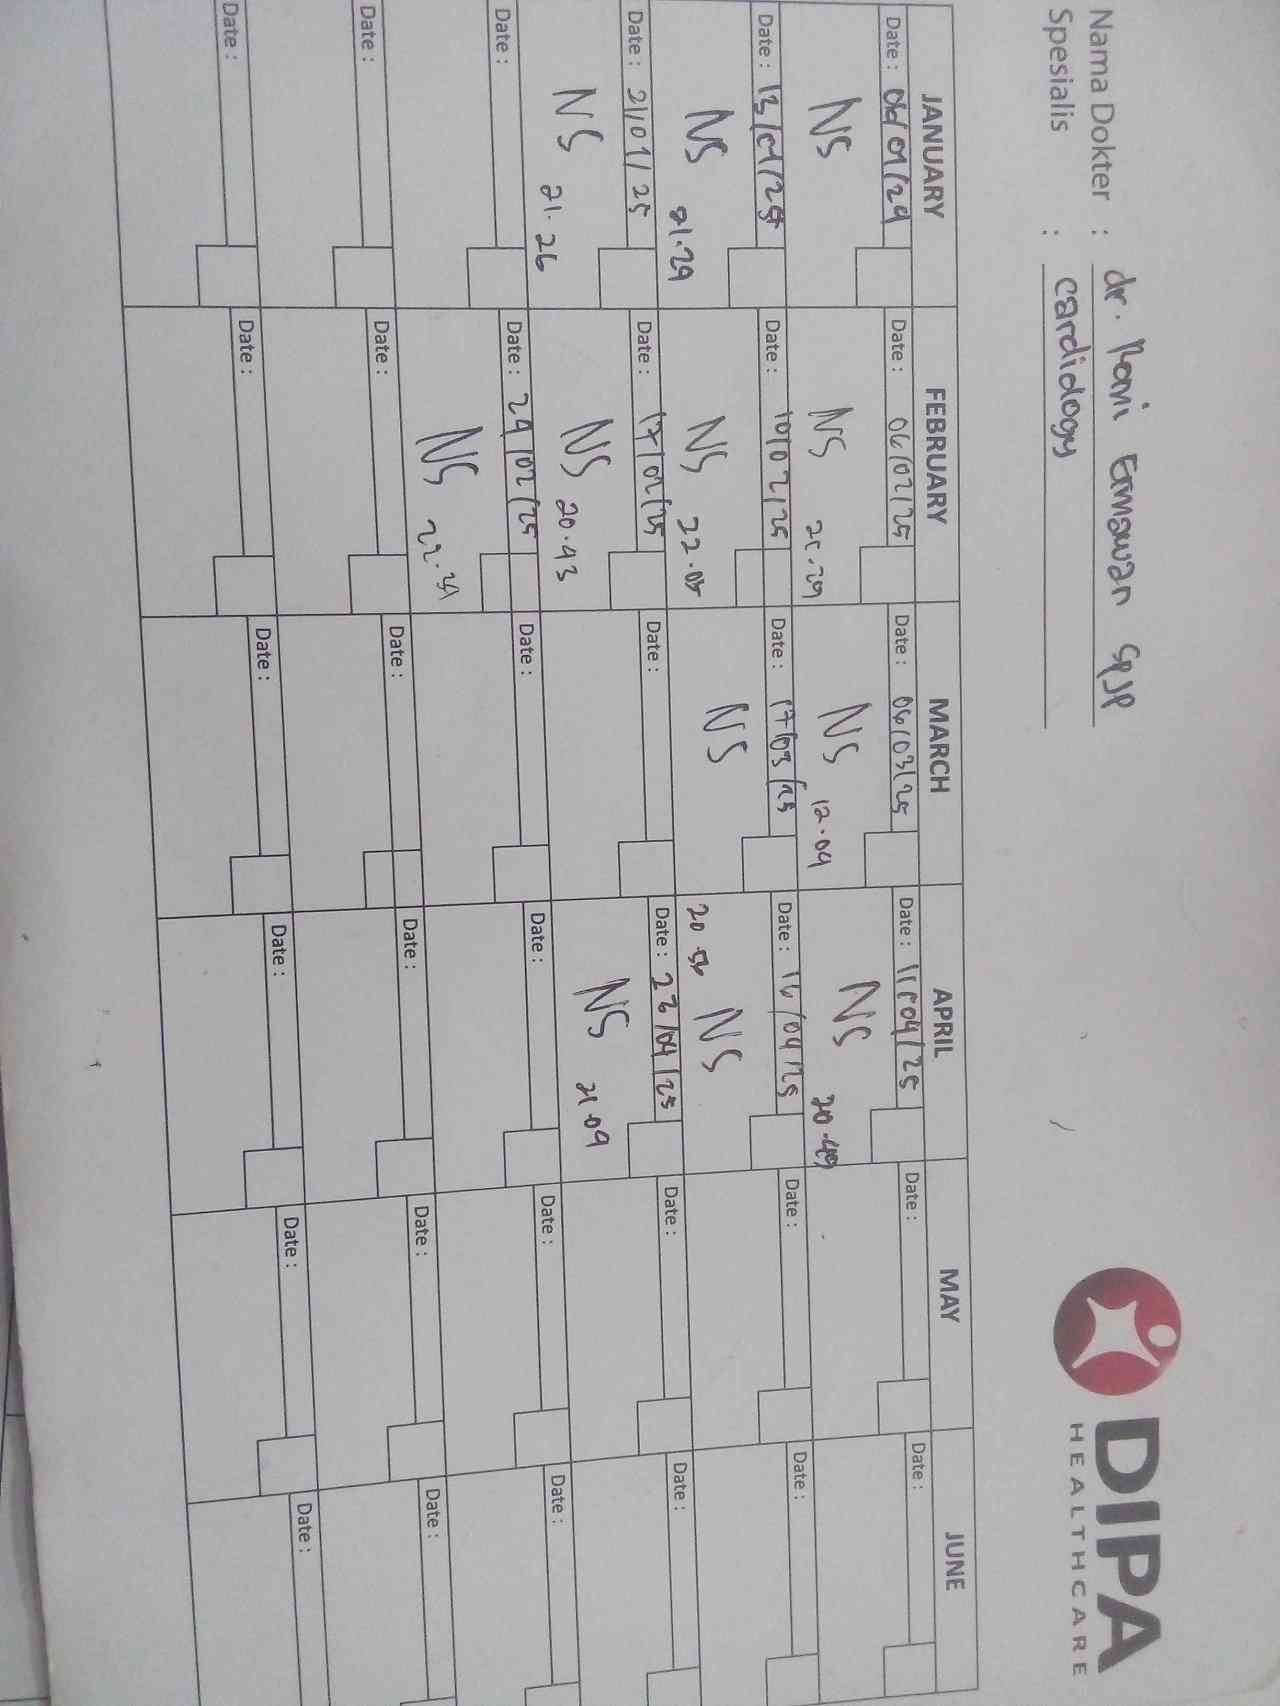 Nama Dokter : dr. Roni Ermawan SpJP
Spesialis : cardidogy
DIPA
HEALTHCARE
JANUARY FEBRUARY MARCH APRIL MAY JUNE
Date : Date : 06/02/25 Date : 06/03/25 Date : 11/04/25 Date : Date :
NS NS NS 12.09 NS 20.49
Date : 13/01/25 Date : 10/02/25 Date : 17/03/25 Date : 16/04/25 Date : Date :
NS 21.29 NS 22.05 NS 20.56 NS
Date : 21/01/25 Date : 17/02/25 Date : Date : 23/04/25 Date : Date :
NS 21.26 NS 20.43 NS 21.09
Date : Date : 24/02/25 Date : Date : Date : Date :
NS
Date : Date : Date : Date : Date : Date :
Date : Date : Date : Date : Date : Date :